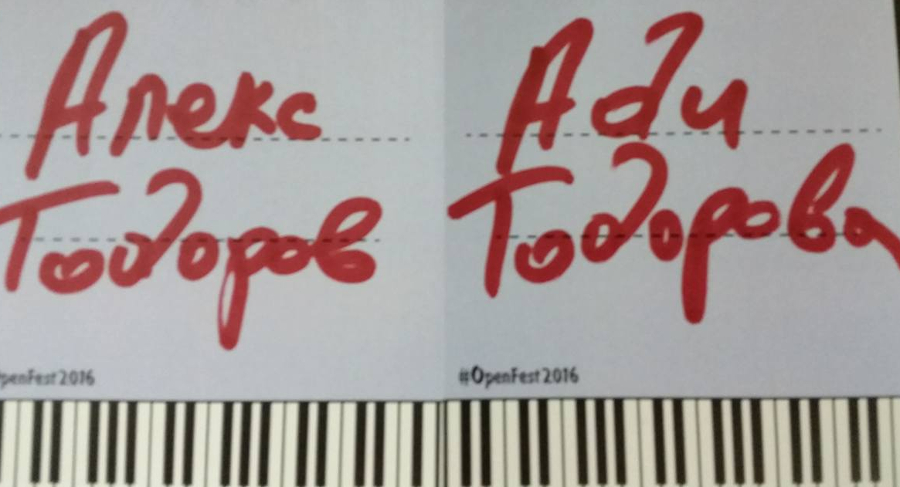 Алекс
Тодоров
#OpenFest2016
Ади
Тодорова
#OpenFest2016